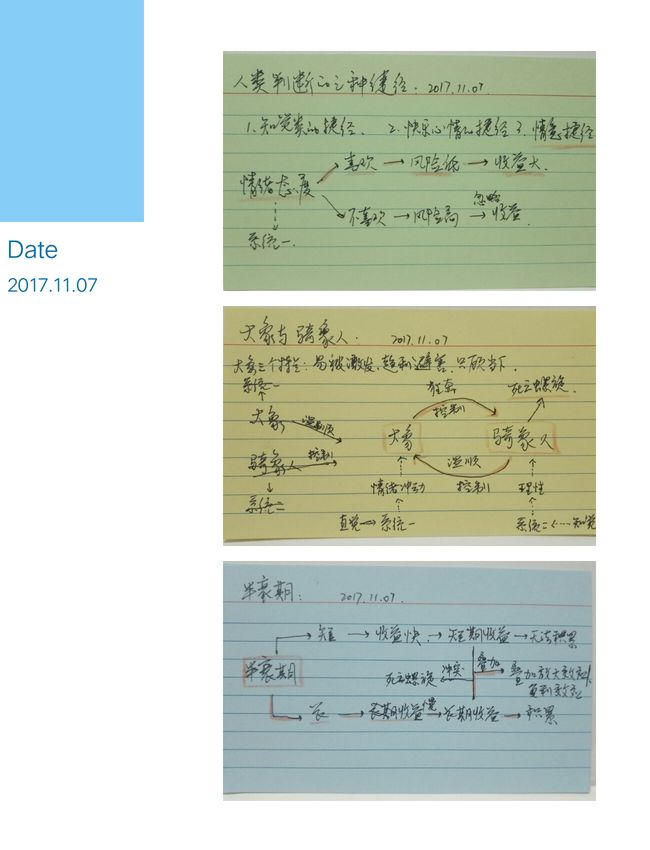 Date
2017.11.07
人类判断的三种捷径. 2017.11.07.
1.知觉类的捷径. 2.快乐心情的捷径 3.情感捷径
喜欢 → 风险低 → 收益大.
情绪态度
忽略
不喜欢 → 风险高 → 收益.
系统一.
大象与骑象人. 2017.11.07
大象三个特点: 易被激发、趋利避害、只顾当下.
系统一
狂奔
死亡螺旋.
大象 温顺
控制
大象
骑象人
骑象人 控制
温顺
情绪冲动
控制
理性
系统二
直觉 → 系统一
系统二 ← 知觉
半衰期: 2017.11.07.
短 → 收益快 → 短期收益 → 无法积累
半衰期
死亡螺旋 冲突
叠加
叠加放大效应
复利效应
长 → 长期收益慢 → 长期收益 → 积累